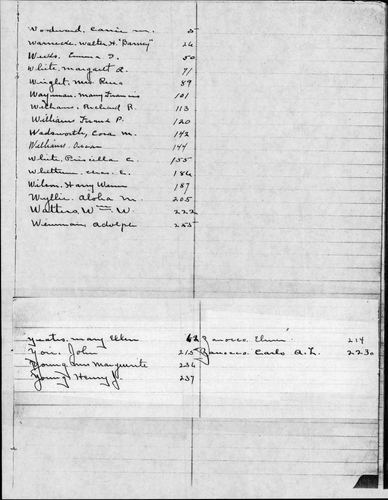 Woodward, Carrie M. 5
Warnecke, Walter H. "Barney" 26
Weeks, Emma J. 50
White, Margaret A. 71
Wright, Mrs Rena 89
Wayman, Mary Francis 101
Williams, Richard R. 113
Williams Frank P. 120
Wadsworth, Cora M. 142
Williams, Oscar 144
White, Priscilla C. 155
Whittum, Chas. E. 186
Wilson, Harry Wenn 187
Wyllie, Aloha M. 205
Watters, Wm W. 222
Wienman Adolph 255
Yeates, Mary Ellen 62
You, John 215
Young Mrs Marguerite 236
Young, Henry J. 237
214
Carlo A. L. 223a